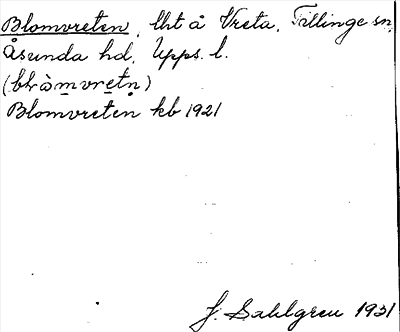 Blomvreten, lht å Vreta, Tillinge sn,
Åsunda hd, Upps. l.
(blòmvretn̥)
Blomvreten kb 1921
J. Sahlgren 1931